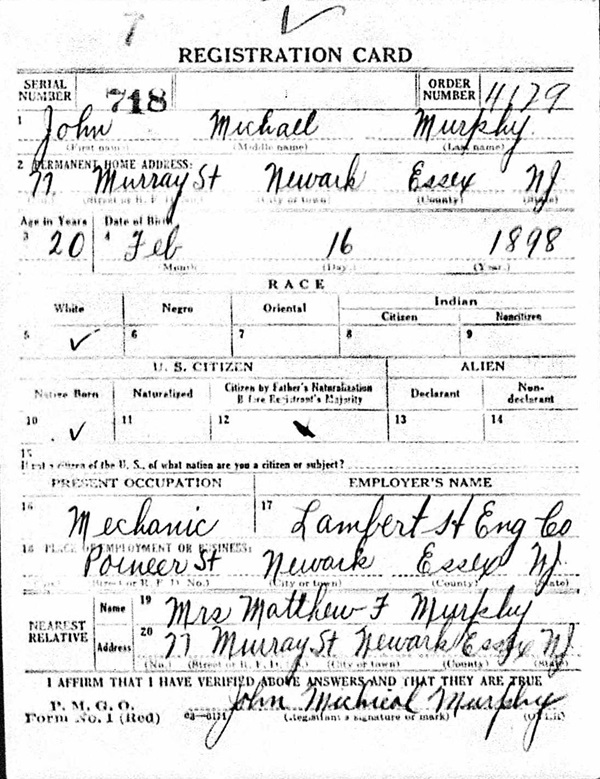 7
REGISTRATION CARD
SERIAL NUMBER 718 ORDER NUMBER 4179
1 John Michael Murphy
(First name) (Middle name) (Last name)
2 PERMANENT HOME ADDRESS:
77 Murray St Newark Essex NJ
(No.) (Street or R. F. D. No.) (City or town) (County) (State)
Age in Years Date of Birth
3 20 4 Feb 16 1898
(Month) (Day.) (Year.)
RACE
White Negro Oriental Indian
Citizen Noncitizen
5 ✓ 6 7 8 9
U. S. CITIZEN ALIEN
Native Born Naturalized Citizen by Father's Naturalization Before Registrant's Majority Declarant Non-declarant
10 ✓ 11 12 13 14
15
If not a citizen of the U. S., of what nation are you a citizen or subject?
PRESENT OCCUPATION EMPLOYER'S NAME
16 Mechanic 17 Lambert H Eng Co
18 PLACE OF EMPLOYMENT OR BUSINESS:
Poineer St Newark Essex NJ
(No.) (Street or R. F. D. No.) (City or town) (County) (State)
NEAREST RELATIVE Name 19 Mrs Matthew F Murphy
Address 20 77 Murray St Newark Essex NJ
(No.) (Street or R. F. D. No.) (City or town) (County) (State)
I AFFIRM THAT I HAVE VERIFIED ABOVE ANSWERS AND THAT THEY ARE TRUE
P. M. G. O.
Form No. 1 (Red) 03—6171 John Micheal Murphy
(Registrant's signature or mark) (OVER)